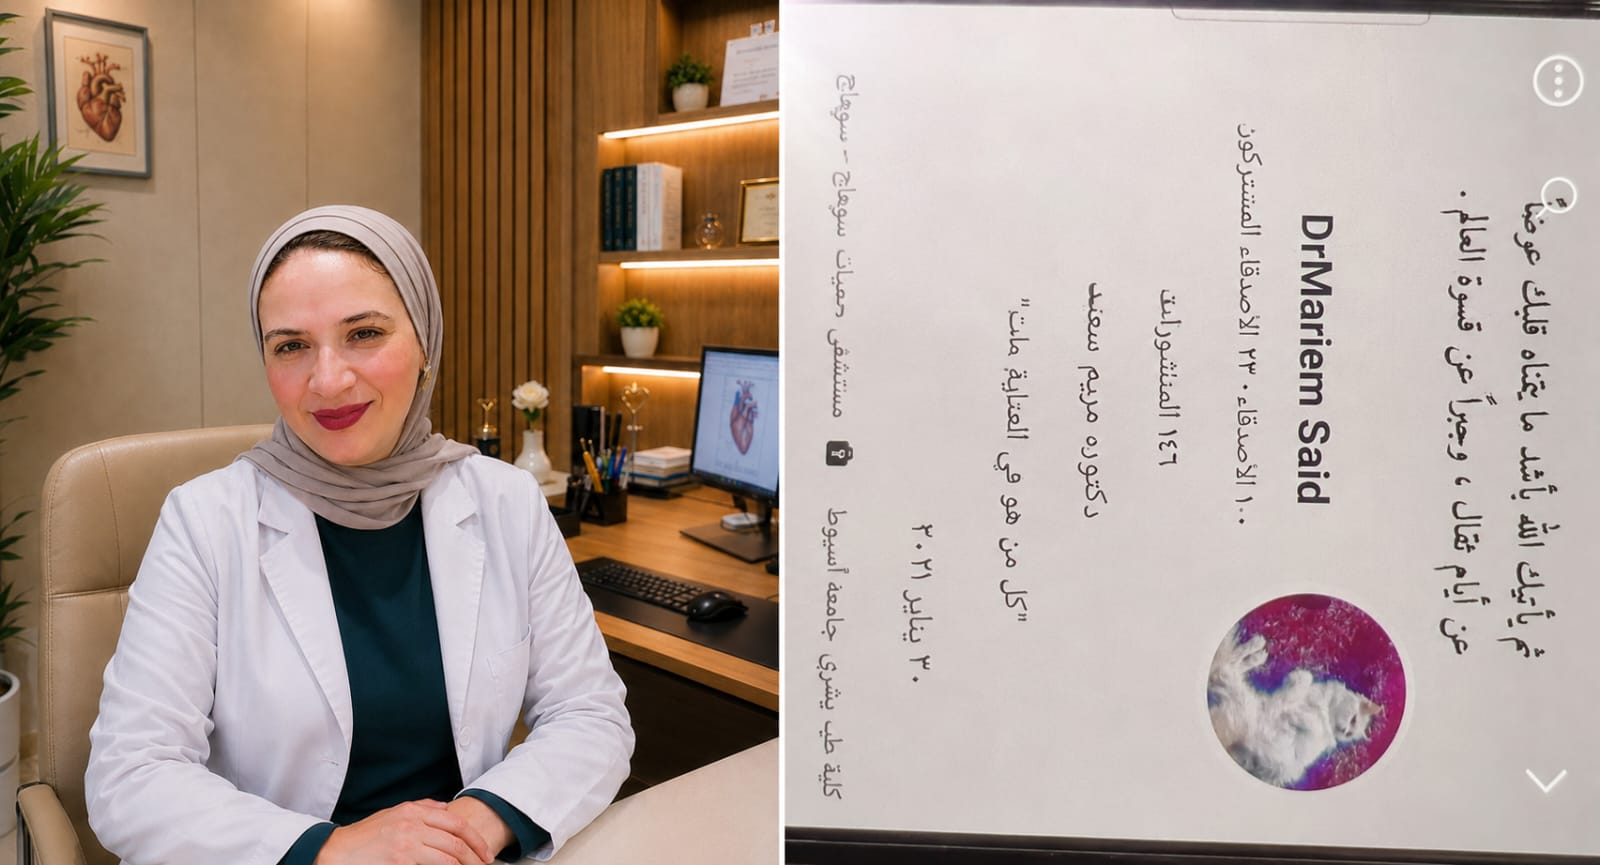 ثم يأتيك الله بأشد ما يتمناه قلبك عوضاً
عن أيام ثقال ، وجبراً عن قسوة العالم .
DrMariem Said
١٠٠ الأصدقاء • ٢٣ الأصدقاء المشتركون
١٤٦ المنشورات
دكتوره مريم سعيد
"كل من هو في العناية مات"
٣٠ يناير ٢٠٢١
كلية طب بشرى جامعة أسيوط
مستشفى حميات سوهاج - سوهاج